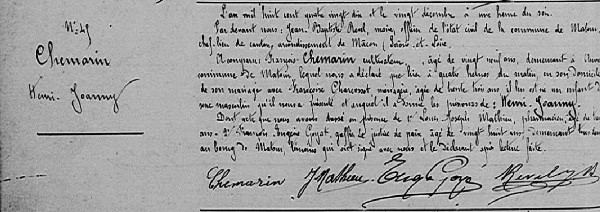 N° 49
Chemarin
Henri-Joanny
L'an mil huit cent quatre vingt dix et le vingt décembre à une heure du soir.
Par devant nous, Jean-Baptiste maire, officier de l'état civil de la commune de Matour,
chef-lieu de canton, arrondissement de Mâcon, Saône-et-Loire.
A comparu François Chemarin cultivateur, âgé de vingt neuf ans, demeurant à
commune de Matour lequel nous a déclaré que hier à quatre heures du matin, en son domicile
de son mariage avec Françoise ménagère, âgée de trente trois ans, il lui est né un enfant du
sexe masculin qu'il nous a présenté et auquel il a donné les prénoms de : Henri-Joanny.
Dont acte que nous avons dressé en présence de 1° Louis Joseph Mathieu, pharmacien, âgé de
ans - 2° François Eugène Goyat, greffier de justice de paix, âgé de vingt huit ans, demeurant tous deux
au bourg de Matour, témoins qui ont signé avec nous et le déclarant après lecture faite.
Chemarin J Mathieu Eugène